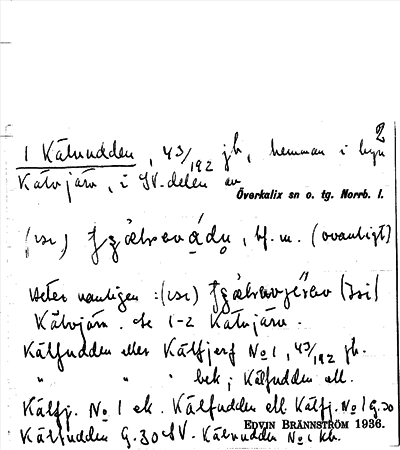 2
1 Kälvudden, 43/192 jh, hemman i byn
Kälvjärv, i SV-delen av
Överkalix sn o. tg. Norrb. l.
(isı) , bf. m. (ovanligt)
Heter vanligen :(isı)
Kälvjärv. Se 1-2 Kälvjärv.
Kälfudden eller Kälfjerf No 1, 43/192 jh.
" " " bek; Kälfudden ell.
Kälfj. No 1 ek. Kälfudden ell. Kälfj. No 1 G.30
Kälfudden G.30 SV. Kälvudden No 1 kh.
EDVIN BRÄNNSTRÖM 1936.